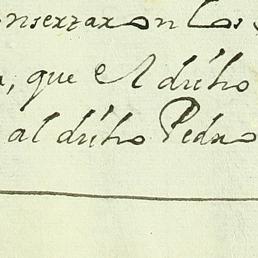 onserraron los
, que el dicho
al dicho Pedro